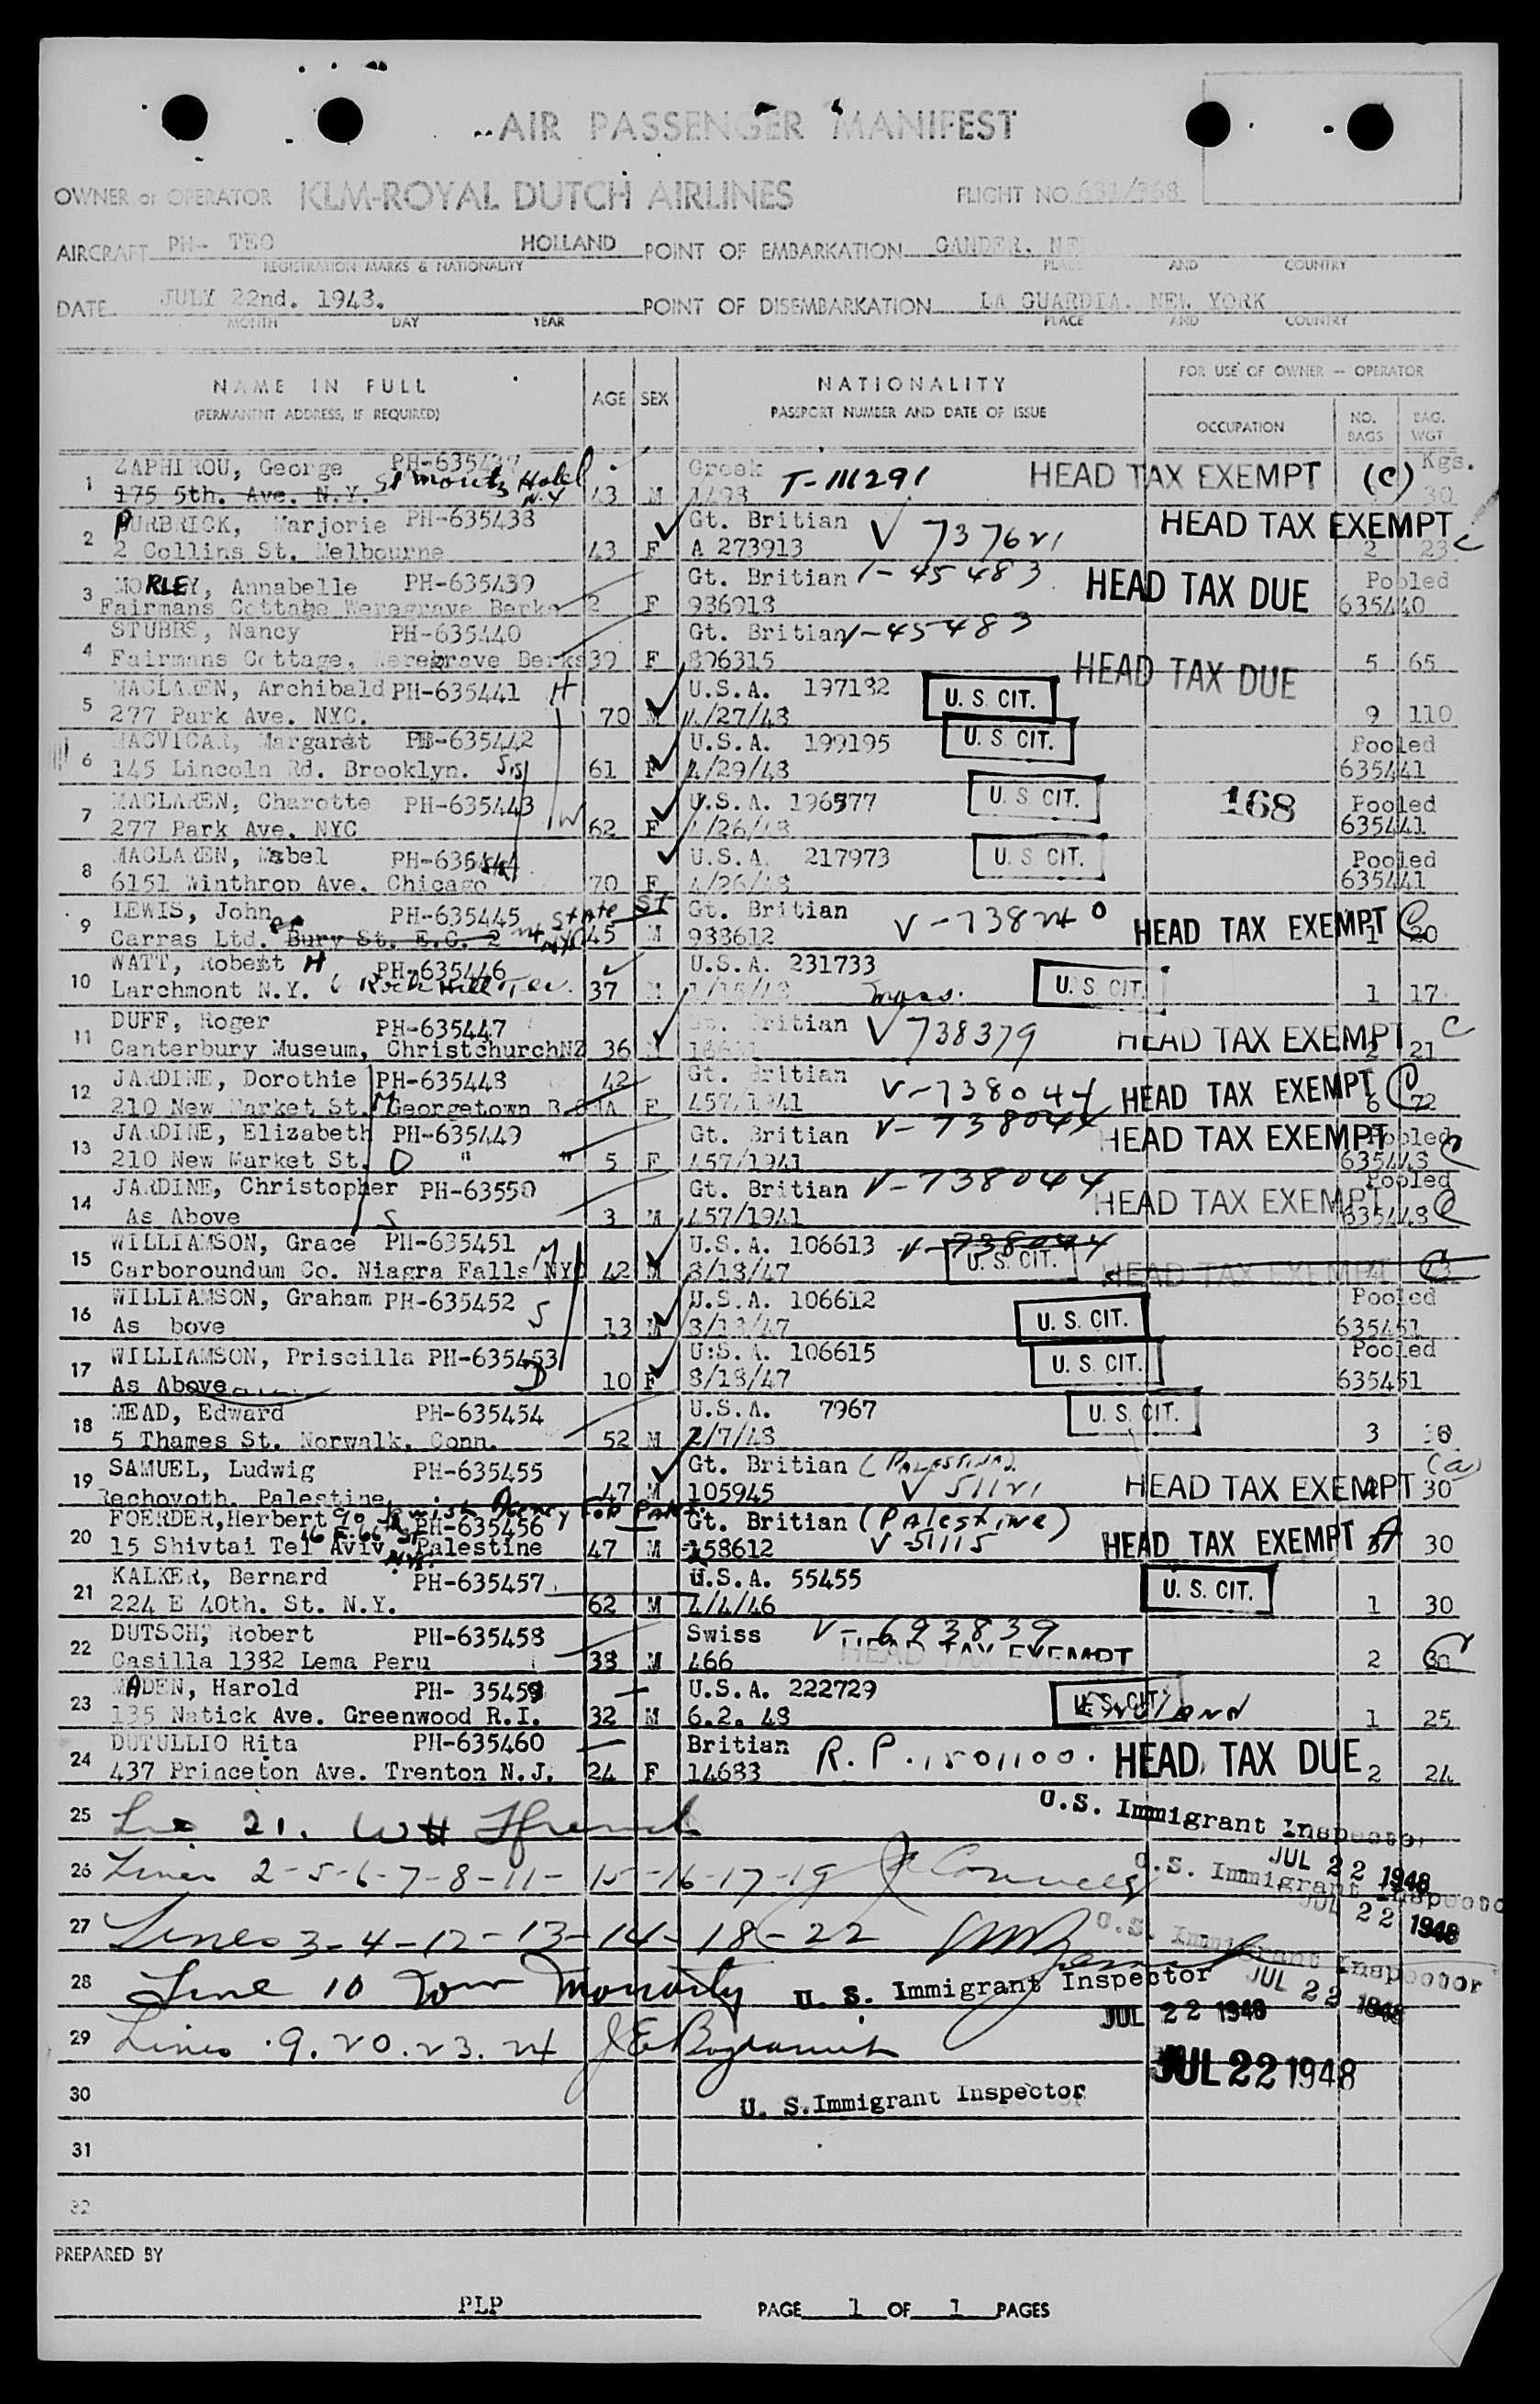 AIR PASSENGER MANIFEST
OWNER or OPERATOR KLM-ROYAL DUTCH AIRLINES FLIGHT NO. 631/368
AIRCRAFT PH- TEO HOLLAND POINT OF EMBARKATION GANDER,
REGISTRATION MARKS & NATIONALITY PLACE AND COUNTRY
DATE JULY 22nd. 1948. POINT OF DISEMBARKATION LA GUARDIA. NEW YORK
MONTH DAY YEAR PLACE AND COUNTRY
NAME IN FULL AGE SEX NATIONALITY FOR USE OF OWNER - OPERATOR
(PERMANENT ADDRESS, IF REQUIRED) PASSPORT NUMBER AND DATE OF ISSUE OCCUPATION NO. BAGS BAG. WGT
1 ZAPHIROU, George PH-635437 Greek T-111291 HEAD TAX EXEMPT (C) Kgs.
175 5th. Ave. N.Y. St Moritz Hotel N.Y 43 M 1498 30
2 PURBRICK, Marjorie PH-635438 Gt. Britian V 737621 HEAD TAX EXEMPT C
2 Collins St. Melbourne 43 F A 273913 2 23
3 MORLEY, Annabelle PH-635439 Gt. Britian 1-45483 HEAD TAX DUE Pooled
Fairmans Cottage Weregrave Berks 2 F 936918 635440
4 STUBBS, Nancy PH-635440 Gt. Britian 1-45483
Fairmans Cottage, Weregrave Berks 39 F 896315 HEAD TAX DUE 5 65
5 MACLAREN, Archibald PH-635441 H U.S.A. 197182 U. S. CIT.
277 Park Ave. NYC. 70 M 4/27/48 9 110
6 MACVICAR, Margaret PH-635442 U.S.A. 199195 U. S. CIT. Pooled
145 Lincoln Rd. Brooklyn. Sis 61 F 4/29/48 635441
7 MACLAREN, Charotte PH-635443 W U.S.A. 196577 U. S. CIT. 168 Pooled
277 Park Ave. NYC 62 F 4/26/48 635441
8 MACLAREN, Mabel PH-635444 U.S.A. 217973 U. S. CIT. Pooled
6151 Winthrop Ave. Chicago 70 F 4/26/48 635441
9 LEWIS, John PH-635445 State ST Gt. Britian V-738240 HEAD TAX EXEMPT C
Carras Ltd. Bury St. E.C. 2 24 NYC 45 M 988612 1 20
10 WATT, Robert H PH-635446 U.S.A. 231733 U. S. CIT.
Larchmont N.Y. 6 Rock Hill Ter. 37 M 1/15/48 Mass. 1 17
11 DUFF, Roger PH-635447 Gt. Britian V 738379 HEAD TAX EXEMPT C
Canterbury Museum, ChristchurchNZ 36 M 2 21
12 JARDINE, Dorothie PH-635448 42 Gt. Britian V-738044 HEAD TAX EXEMPT C
210 New Market St. M Georgetown F 457/1941 6 72
13 JARDINE, Elizabeth PH-635449 Gt. Britian V-738044 HEAD TAX EXEMPT Pooled
210 New Market St. D " " 5 F 457/1941 635448 C
14 JARDINE, Christopher PH-63550 Gt. Britian V-738044 HEAD TAX EXEMPT Pooled
As Above S 3 M 457/1941 635448 C
15 WILLIAMSON, Grace PH-635451 M U.S.A. 106613 V-738044 U. S. CIT.
Carboroundum Co. Niagra Falls NYC 42 M 8/18/47 HEAD TAX EXEMPT
16 WILLIAMSON, Graham PH-635452 S U.S.A. 106612 U. S. CIT. Pooled
As bove 13 M 8/18/47 635451
17 WILLIAMSON, Priscilla PH-635453 D U.S.A. 106615 U. S. CIT. Pooled
As Above 10 F 8/18/47 635451
18 MEAD, Edward PH-635454 U.S.A. 7967 U. S. CIT.
5 Thames St. Norwalk, Conn. 52 M 2/7/48 3
19 SAMUEL, Ludwig PH-635455 Gt. Britian (Palestina) (a)
Rechovoth, Palestine 47 M 105945 V 51121 HEAD TAX EXEMPT 30
c/o Jewish Agency For Pales.
20 FOERDER,Herbert PH-635456 Gt. Britian (Palestine) HEAD TAX EXEMPT A
15 Shivtai Tel Aviv, Palestine 16 E. 66 St NYC. 47 M 158612 V-51115 30
21 KALKER, Bernard PH-635457 U.S.A. 55455 U. S. CIT.
224 E 40th. St. N.Y. 62 M 4/4/46 1 30
22 DUTSCH, Robert PH-635458 Swiss V-693839 HEAD TAX EXEMPT
Casilla 1382 Lema Peru 38 M 466 2 30
23 MADEN, Harold PH- 35459 U.S.A. 222729 U. S. CIT.
135 Natick Ave. Greenwood R.I. 32 M 6.2. 48 1 25
24 DUTULLIO Rita PH-635460 Britian R.P. 1501100. HEAD TAX DUE
437 Princeton Ave. Trenton N.J. 24 F 14683 2 24
25 Line 21. U.S. Immigrant Inspector
JUL 22 1948
26 Lines 2-5-6-7-8-11-15-16-17-19 U.S. Immigrant Inspector
JUL 22 1948
27 Lines 3-4-12-13-14-18-22 U.S. Immigrant Inspector
JUL 22 1948
28 Line 10 Tom Moriarty U. S. Immigrant Inspector
JUL 22 1948
29 Lines 9.20.23.24
JUL 22 1948
30 U. S. Immigrant Inspector
31
32
PREPARED BY
PLP PAGE 1 OF 1 PAGES